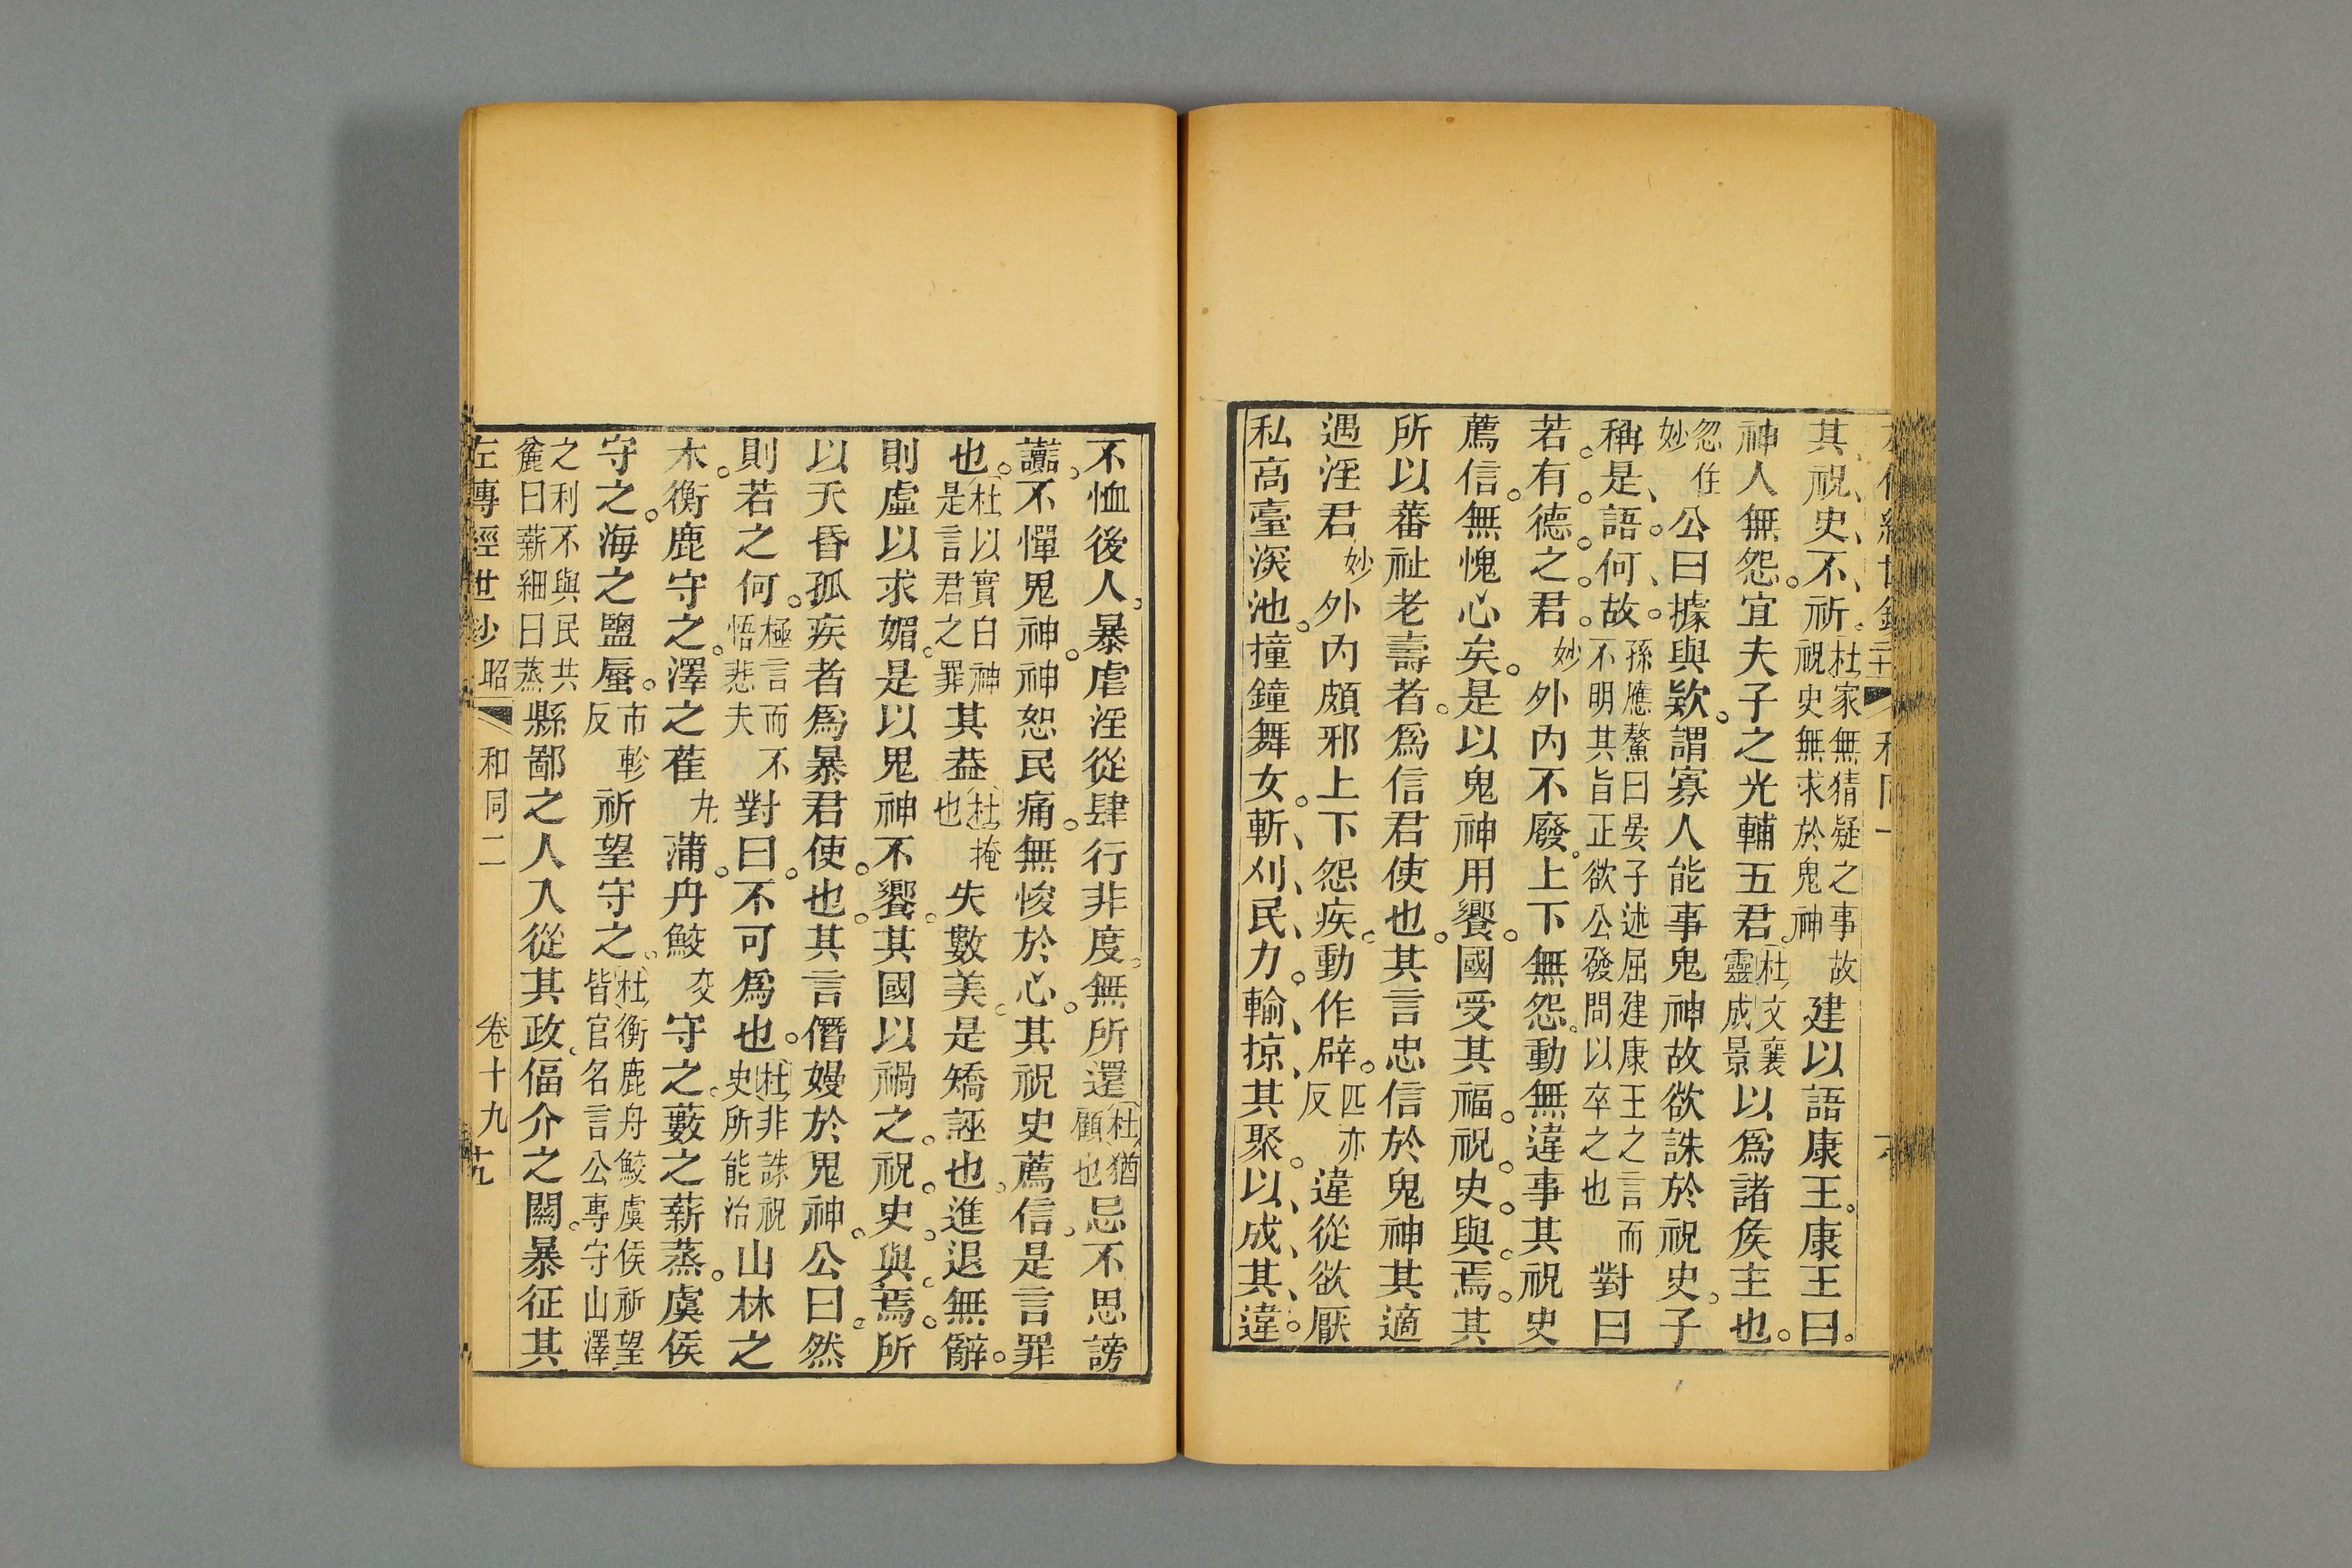 其祝史不祈杜家無猜疑之事故祝史無求於鬼神建以語康王康王曰
神人無怨宜夫子之光輔五君杜文襄靈成景以爲諸矦主也
忽住妙公曰據與欵謂寡人能事鬼神故欲誅於祝史子
稱是語何故孫應鰲曰晏子述屈建康王之言而不明其旨正欲公發問以卒之也對曰
若有德之君妙外內不廢上下無怨動無違事其祝史
薦信無愧心矣是以鬼神用饗國受其福祝史與焉其
所以蕃祉老壽者爲信君使也其言忠信於鬼神其適
遇淫君妙外內頗邪上下怨疾動作辟匹亦反違從欲厭
私高臺深池撞鐘舞女斬刈民力輸掠其聚以成其違
不恤後人暴虐淫從肆行非度無所還杜猶顧也忌不思謗
讟不憚鬼神神怒民痛無悛於心其祝史薦信是言罪
也杜以實白神是言君之罪其葢杜掩也失數美是矯誣也進退無辭
則虛以求媚是以鬼神不饗其國以禍之祝史與焉所
以夭昏孤疾者爲暴君使也其言僭嫚於鬼神公曰然
則若之何極言而不悟悲夫對曰不可爲也杜非誅祝史所能治山林之
木衡鹿守之澤之萑九蒲舟鮫交守之藪之薪蒸虞侯
守之海之鹽蜃市軫反祈望守之杜衡鹿舟鮫虞侯祈望皆官名言公專守山澤
之利不與民共麄曰薪細曰蒸縣鄙之人入從其政偪介之關暴征其
左傳經世鈔昭 和同二 卷十九